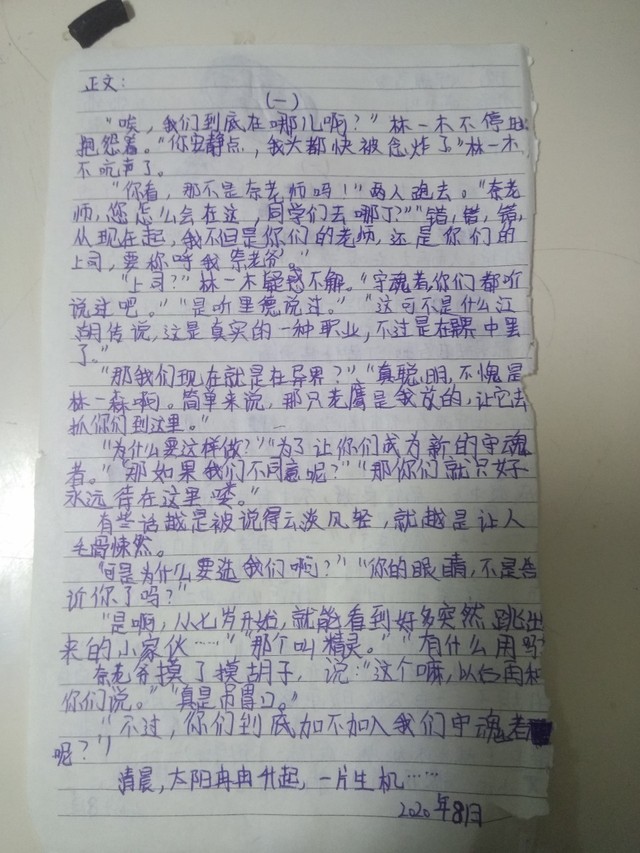 正文：
（一）
"唉，我们到底在哪儿啊？"林一木不停地
抱怨着。"你安静点，我头都快被念炸了"林一木
不吭声了。
"你看，那不是奈老师吗！"两人跑去。"奈老
师，您怎么会在这，同学们去哪了？""错，错，错，
从现在起，我不但是你们的老师，还是你们的
上司，要称呼我'奈老爷'。
"上司？"林一木疑惑不解。"守魂者，你们都听
说过吧。""是听里德说过。""这可不是什么江
湖传说，这是真实的一种职业，不过是在异界中罢
了。"
"那我们现在就是在异界？""真聪明，不愧是
林一森啊。简单来说，那只老鹰是我放的，让它去
抓你们到这里。"
"为什么要这样做？""为了让你们成为新的守魂
者。""那如果我们不同意呢？""那你们就只好
永远待在这里喽。"
有些话越是被说得云淡风轻，就越是让人
毛骨悚然。
"可是为什么要选我们啊？""你的眼睛，不是告
诉你了吗？"
"是啊，从七岁开始，就能看到好多突然跳出
来的小家伙……""那个叫精灵。""有什么用吗？
奈老爷摸了摸胡子，说："这个嘛，以后再和
你们说。""真是吊胃口。"
"不过，你们到底加不加入我们守魂者
呢？"
清晨，太阳冉冉升起，一片生机……
2020年8月